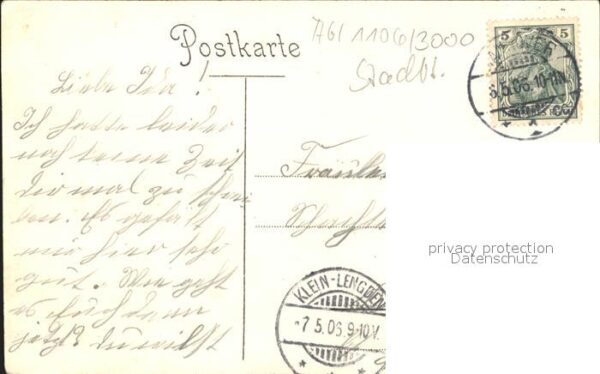 Postkarte
A6/1106/3000
Stadtb.
5 5
5.5.06.10-11N.
Liebe Ida!
Ich hatte leider
noch keine Zeit
dir mal zu schrei
ben. Es gefält
mir hier sehr
gut. Wie geht
es Euch denn
jetzt? du willst
Fräulei
KLEIN-LENGDEN
-7.5.06.9-10V.
privacy protection
Datenschutz